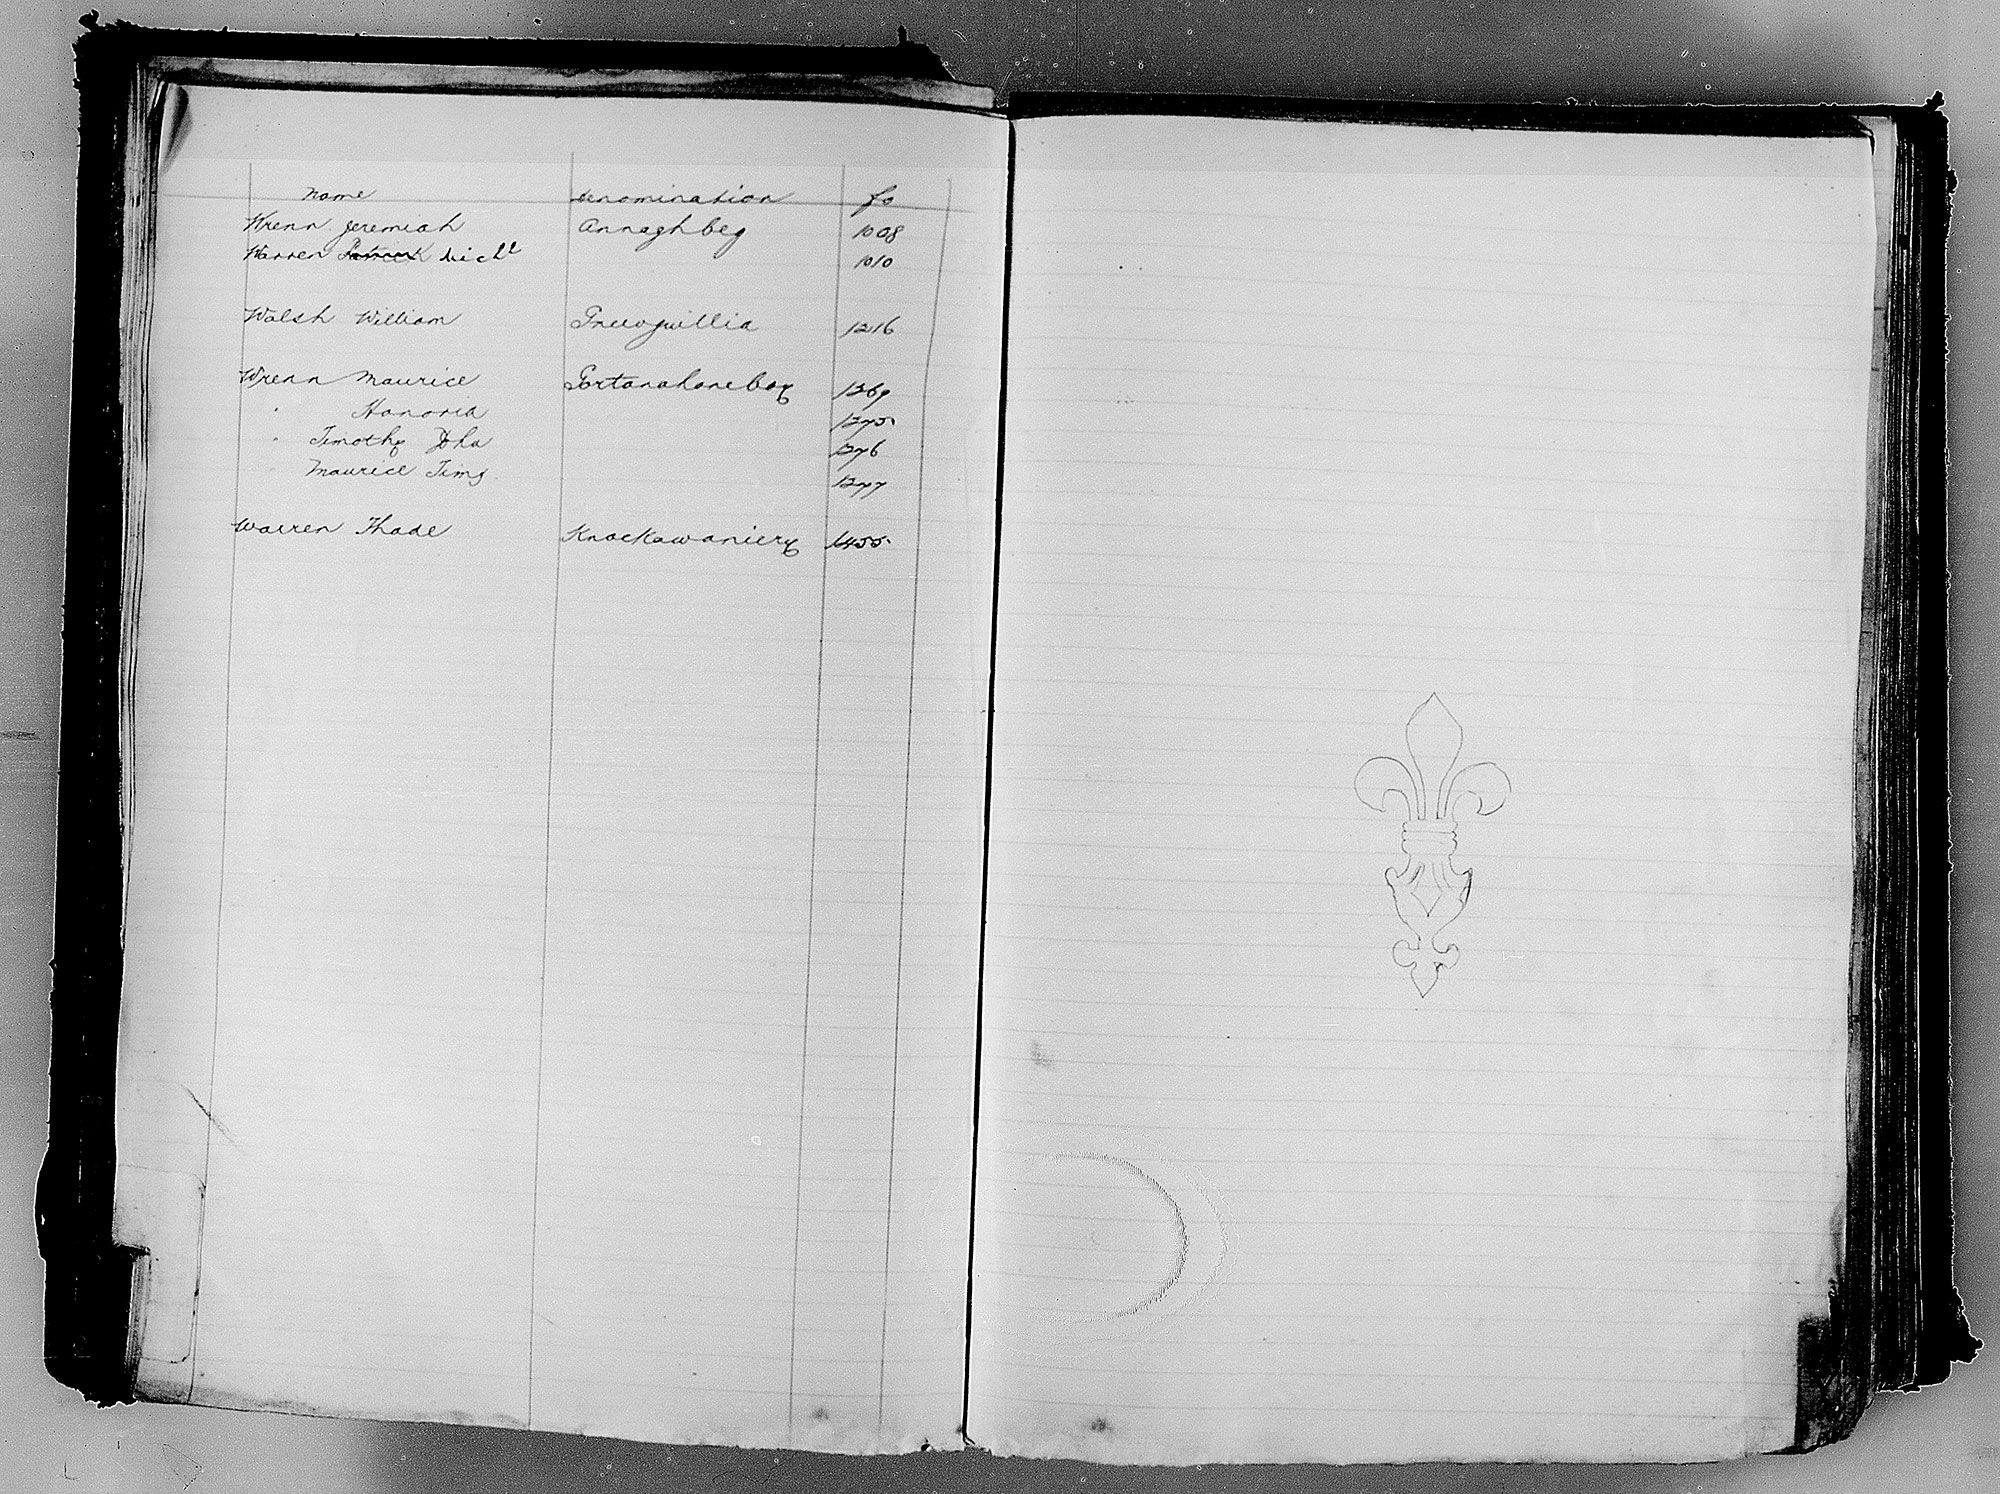 name denomination fo
Wrenn Jeremiah Annaghbeg 1008
Warren Patrick Michl 1010
Walsh William Gneevguillia 1216
Wrenn Maurice Gortanahaneboy 1269
" Honoria 1275
" Timothy John 1276
" Maurice Timy 1277
Warren Thade Knockawaniery 1455